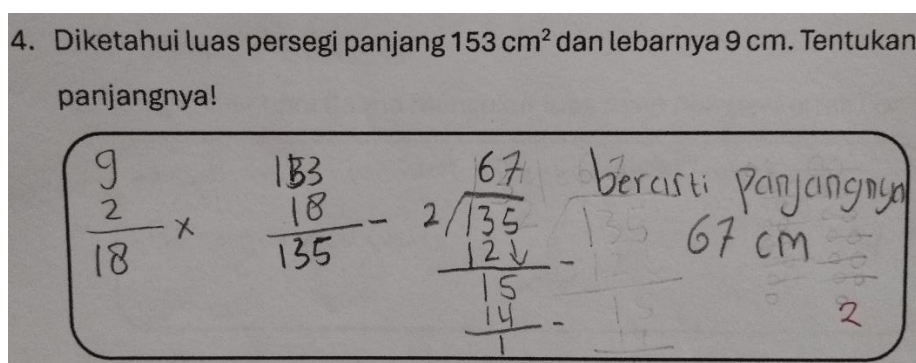 4. Diketahui luas persegi panjang 153 cm² dan lebarnya 9 cm. Tentukan
panjangnya!
9
2
×
18
153
18
-
135
67
2/135
12↓
-
15
14
-
1
berarti panjangnya
67 cm
2